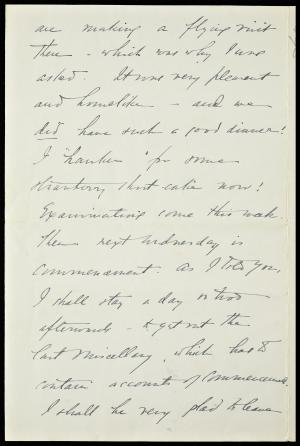 are making a flying visit
there - which was why I was
asked. It was very pleasant
and homelike - and we
did have such a good dinner!
I "hanker" for some
strawberry short cake now!
Examinations come this week.
Then next Wednesday is
Commencement. As I told you,
I shall stay a day or two
afterwards - to get out the
last Miscellany, which has to
contain accounts of Commencement.
I shall be very glad to leave